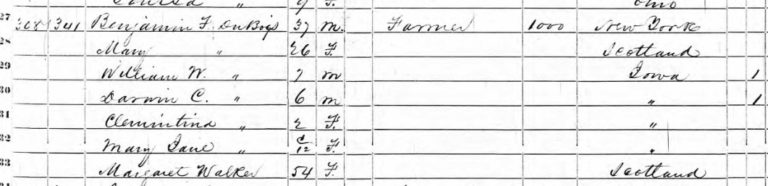 Louisa " 9 F. Ohio
27 308 341 Benjamin F. DuBois 37 m. Farmer 1000 New York
28 Mary " 26 F. Scotland
29 William W. " 7 m Iowa 1
30 Darwin C. " 6 m " 1
31 Clemintina " 2 F. "
32 Mary Jane " /12 F. "
33 Margaret Walker 54 F. Scotland